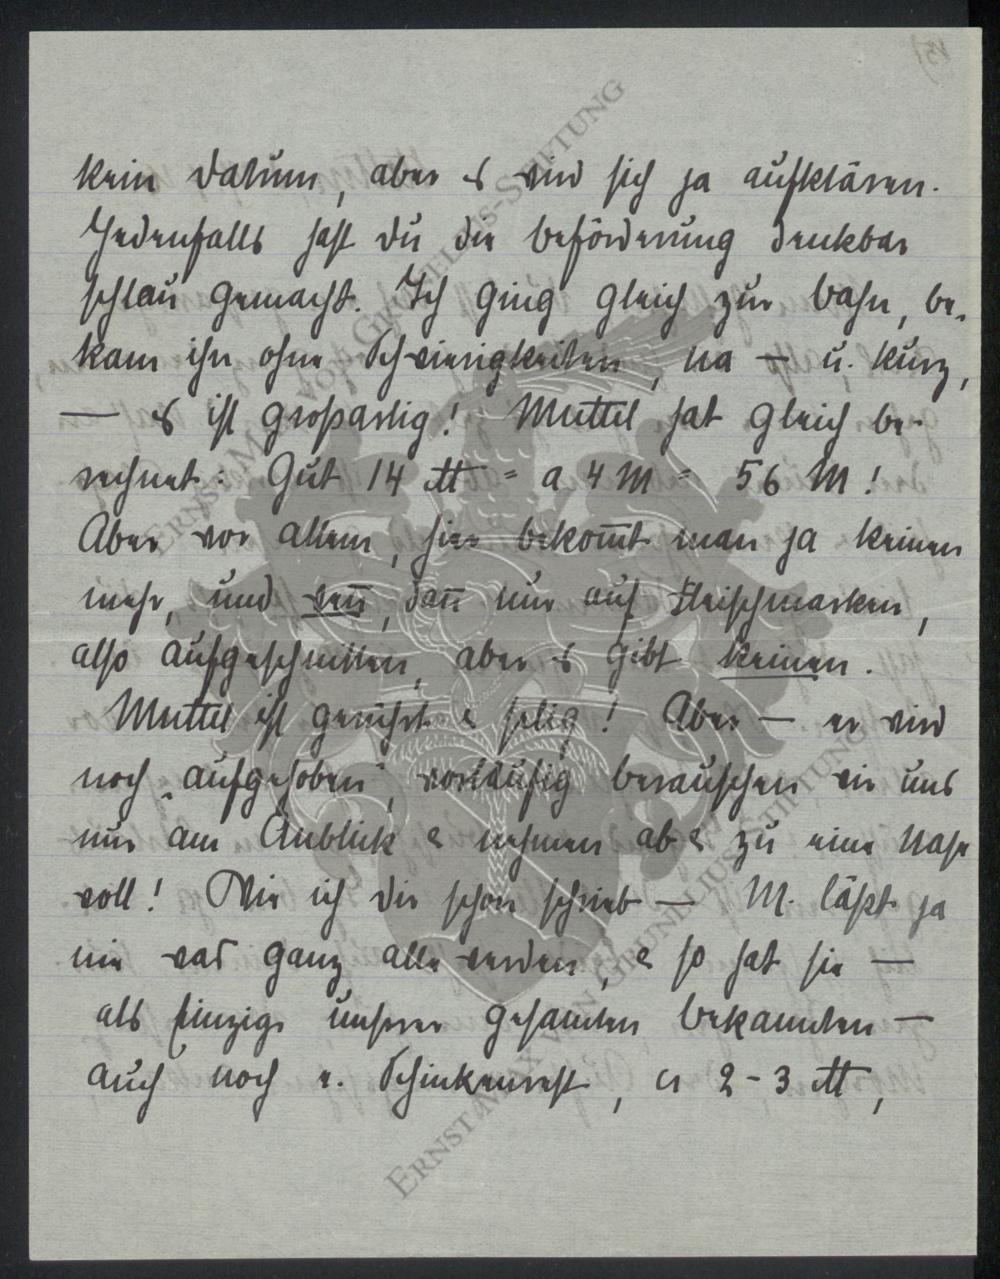 kein Datum, aber es wird sich ja aufklären.
Jedenfalls hast du die Beförderung denkbar
schlau gemacht. Ich ging gleich zur Bahn, be-
kam ihn ohne Schwierigkeiten, na — u. kurz,
— es ist großartig! Muttel hat gleich be-
rechnet: Gut 14 ℔ = a 4 M = 56 M!
Aber vor allem, hier bekom̅t man ja keinen
mehr, und wen̅, dan̅ nur auf Fleischmarken,
also aufgeschnitten, aber es gibt keinen.
Muttel ist gerührt & selig! Aber — er wird
noch „aufgehoben", vorläufig berauschen wir uns
nur am Anblick & nehmen ab & zu eine Nase
voll! Wie ich dir schon schrieb — M. läßt ja
nie was ganz alle werden, & so hat sie —
als Einzige unserer gesamten Bekannten —
auch noch e. Schinkenrest, ca 2-3 ℔,
ERNST-MAX VON GRUNELIUS-STIFTUNG
ERNST-MAX VON GRUNELIUS-STIFTUNG